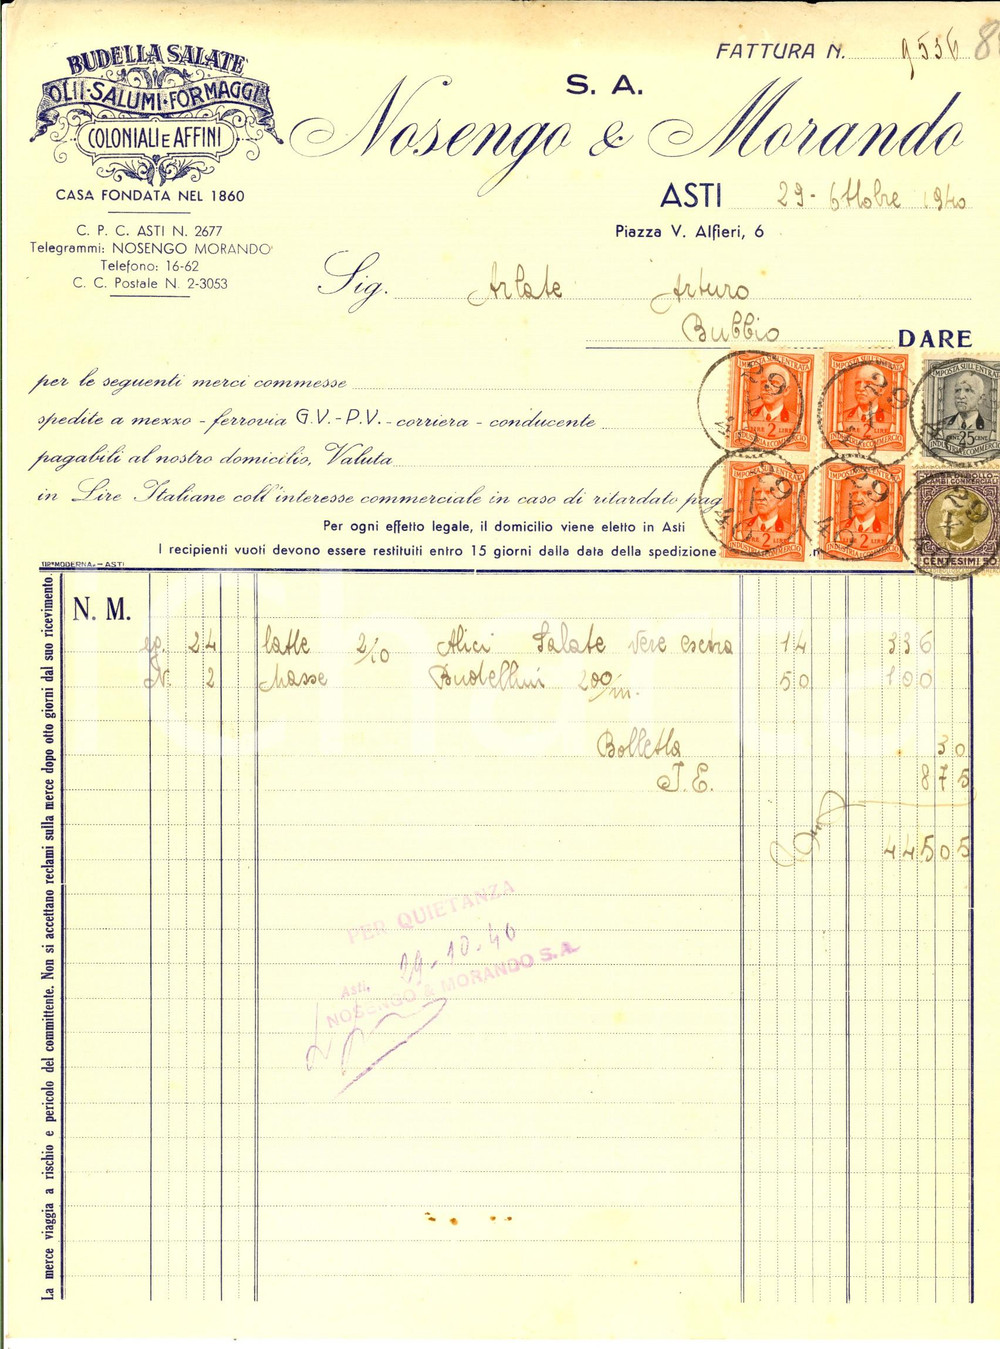 FATTURA N. 9536
BUDELLA SALATE
OLII-SALUMI-FORMAGGI
COLONIALI E AFFINI
CASA FONDATA NEL 1860
C. P. C. ASTI N. 2677
Telegrammi: NOSENGO MORANDO
Telefono: 16-62
C. C. Postale N. 2-3053
S. A.
Nosengo & Morando
ASTI 29 - Ottobre 1940
Piazza V. Alfieri, 6
Sig. Arlate Arturo
Bubbio
DARE
per le seguenti merci commesse
spedite a mezzo - ferrovia G.V.-P.V. - corriera - conducente
pagabili al nostro domicilio, Valuta
in Lire Italiane coll'interesse commerciale in caso di ritardato pag
Per ogni effetto legale, il domicilio viene eletto in Asti
I recipienti vuoti devono essere restituiti entro 15 giorni dalla data della spedizione
TIP. MODERNA - ASTI
IMPOSTA SULL'ENTRATA
LIRE 2 LIRE
INDUSTRIA E COMMERCIO
IMPOSTA SULL'ENTRATA
LIRE 2 LIRE
INDUSTRIA E COMMERCIO
IMPOSTA SULL'ENTRATA
25 CENT.
INDUSTRIA E COMMERCIO
IMPOSTA SULL'ENTRATA
2 LIRE
INDUSTRIA E COMMERCIO
IMPOSTA SULL'ENTRATA
2 LIRE
INDUSTRIA E COMMERCIO
TASSA DI BOLLO
SCAMBI COMMERCIALI
CENTESIMI 50
N. M.
24 latte 2/10 Alici Salate vere 14 336
N. 2 Masse Budellini 200/m. 50 100
Bolletta 30
I. E. 875
44505
PER QUIETANZA
Asti, 29-10-40
NOSENGO & MORANDO S.A.
La merce viaggia a rischio e pericolo del committente. Non si accettano reclami sulla merce dopo otto giorni dal suo ricevimento.